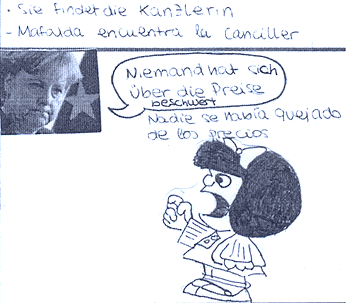 · Sie findet die Kanzlerin
- Mafalda encuentra la Canciller
Niemand hat sich
über die Preise
beschwert
Nadie se había quejado
de los precios